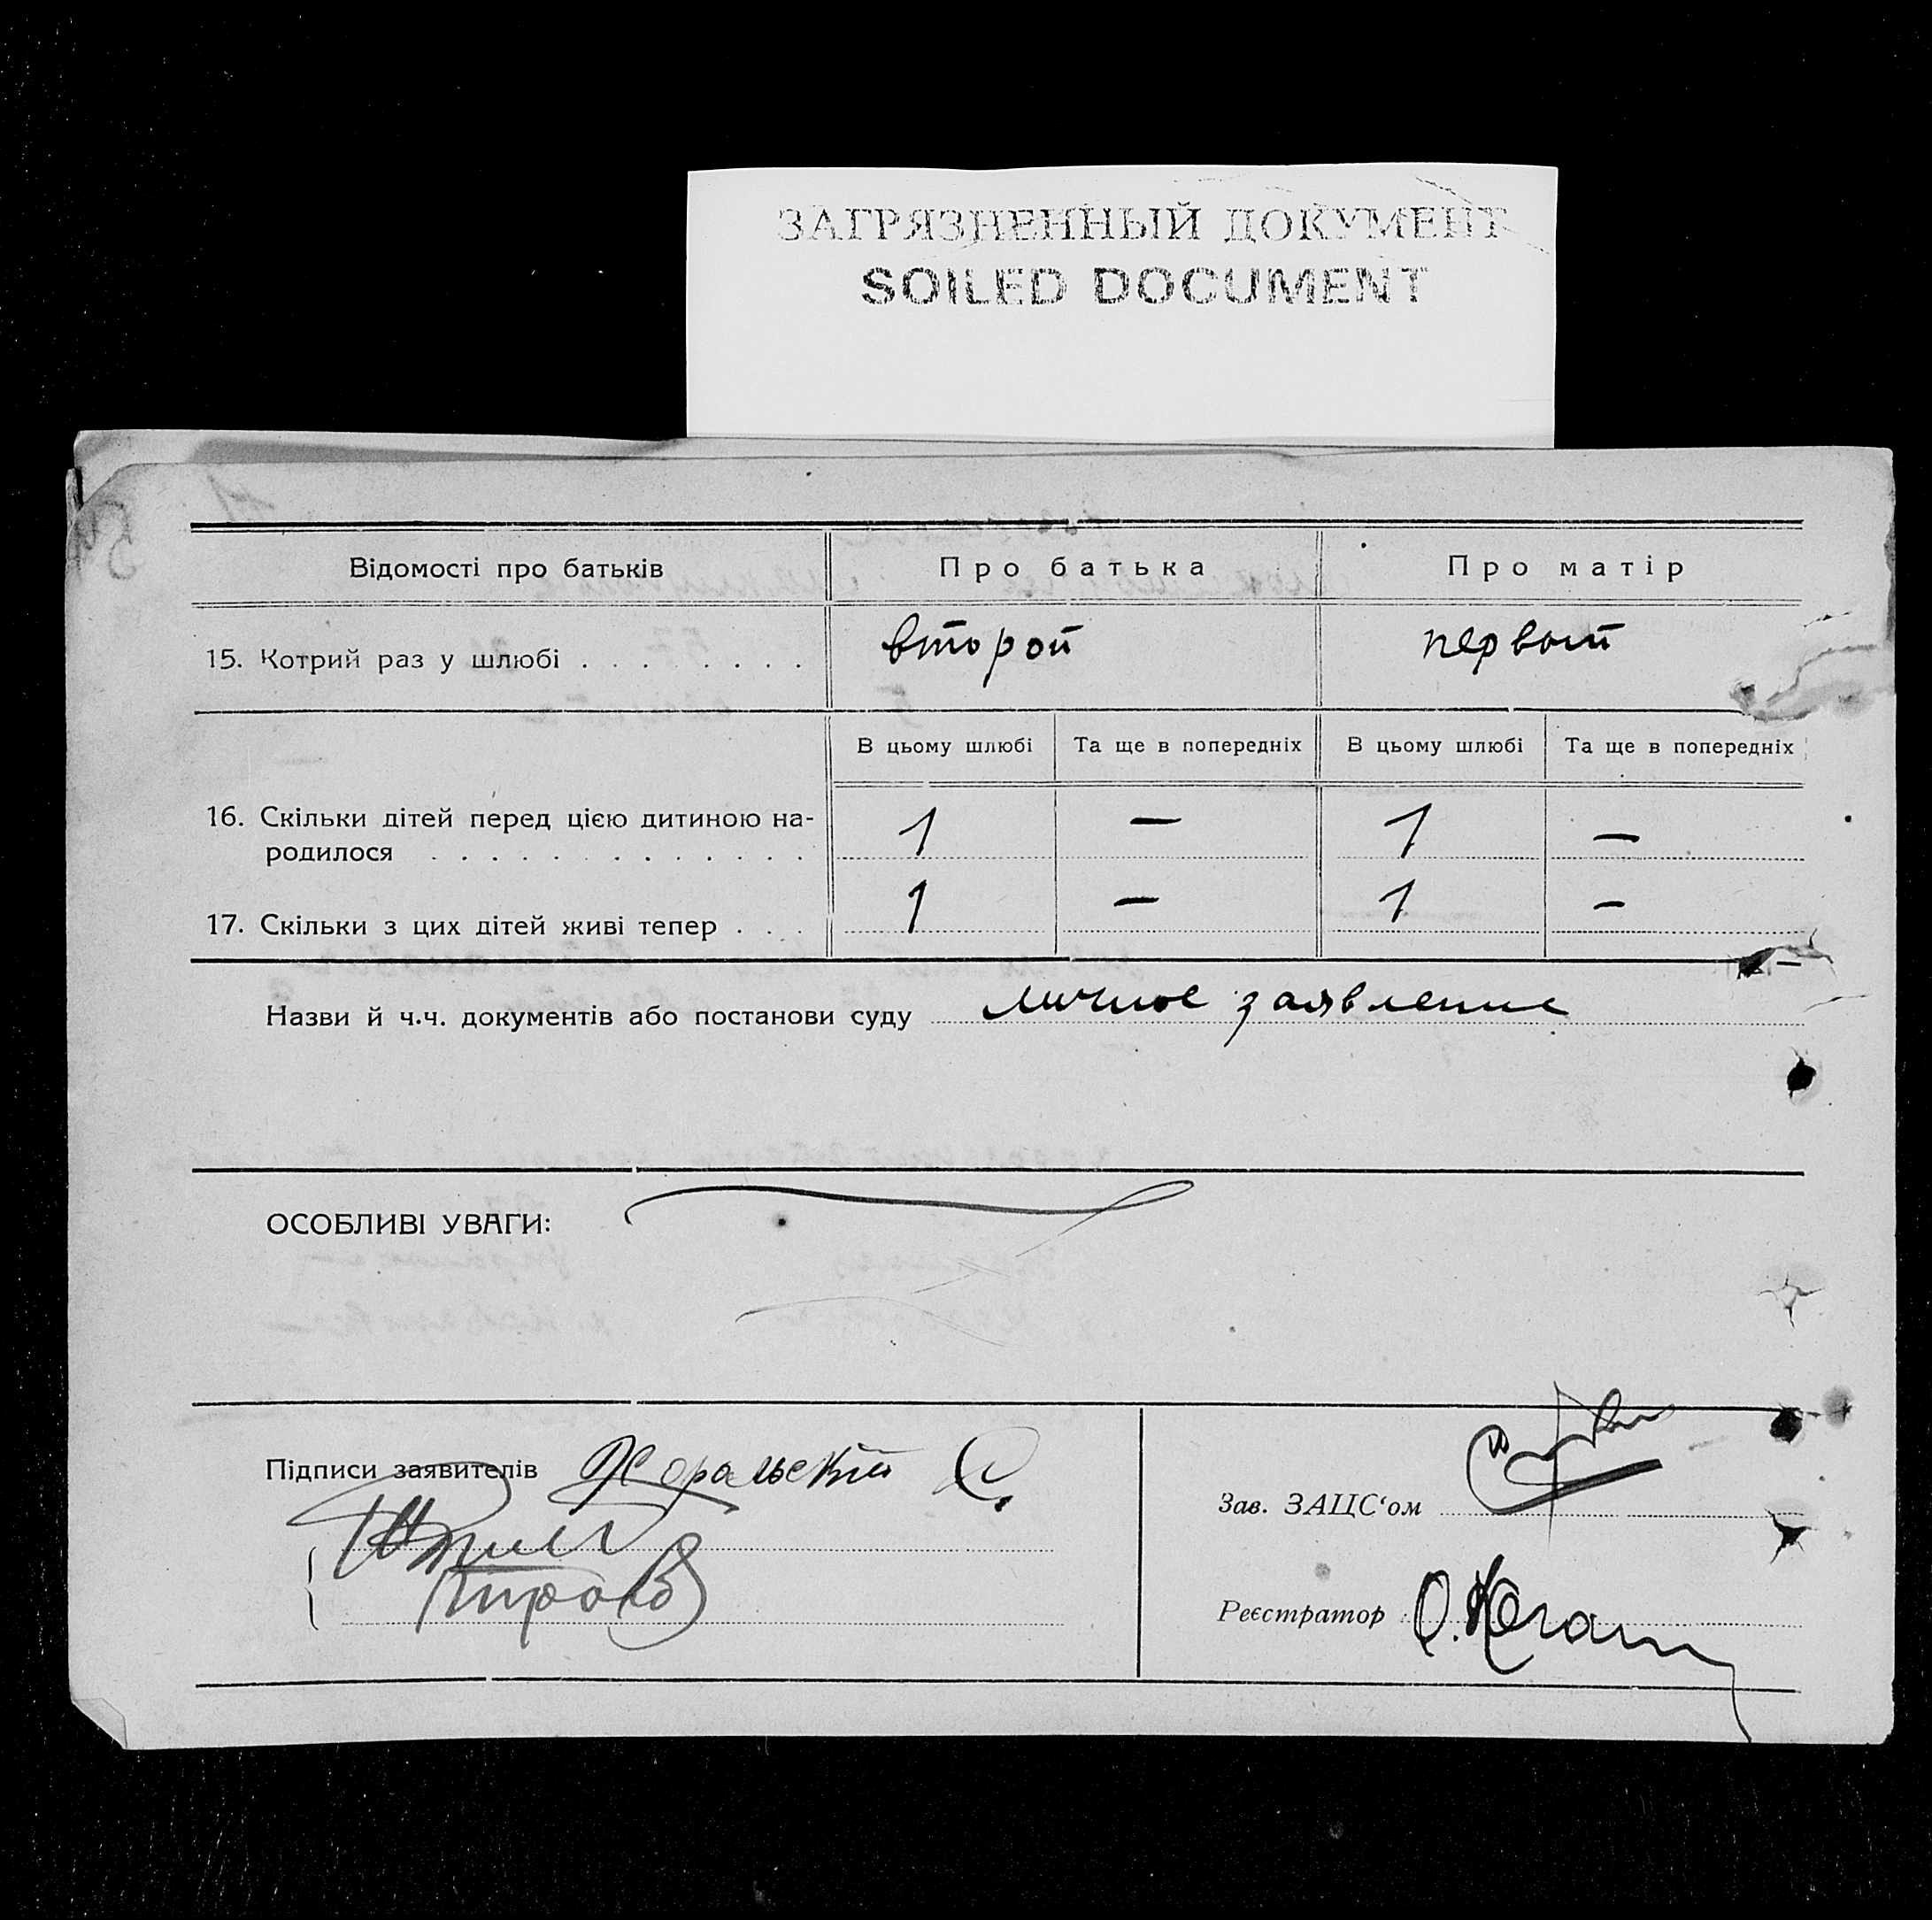 ЗАГРЯЗНЕННЫЙ ДОКУМЕНТ
SOILED DOCUMENT
Відомості про батьків Про батька Про матір
15. Котрий раз у шлюбі . . . . . . . . второй первый
В цьому шлюбі Та ще в попередніх В цьому шлюбі Та ще в попередніх
16. Скільки дітей перед цією дитиною на-
родилося . . . . . . . . . . . . . 1 — 1 —
17. Скільки з цих дітей живі тепер . . . 1 — 1 —
Назви й ч.ч. документів або постанови суду личное заявление
ОСОБЛИВІ УВАГИ:
Підписи заявителів
Зав. ЗАЦС‘ом
Реєстратор О. Коган